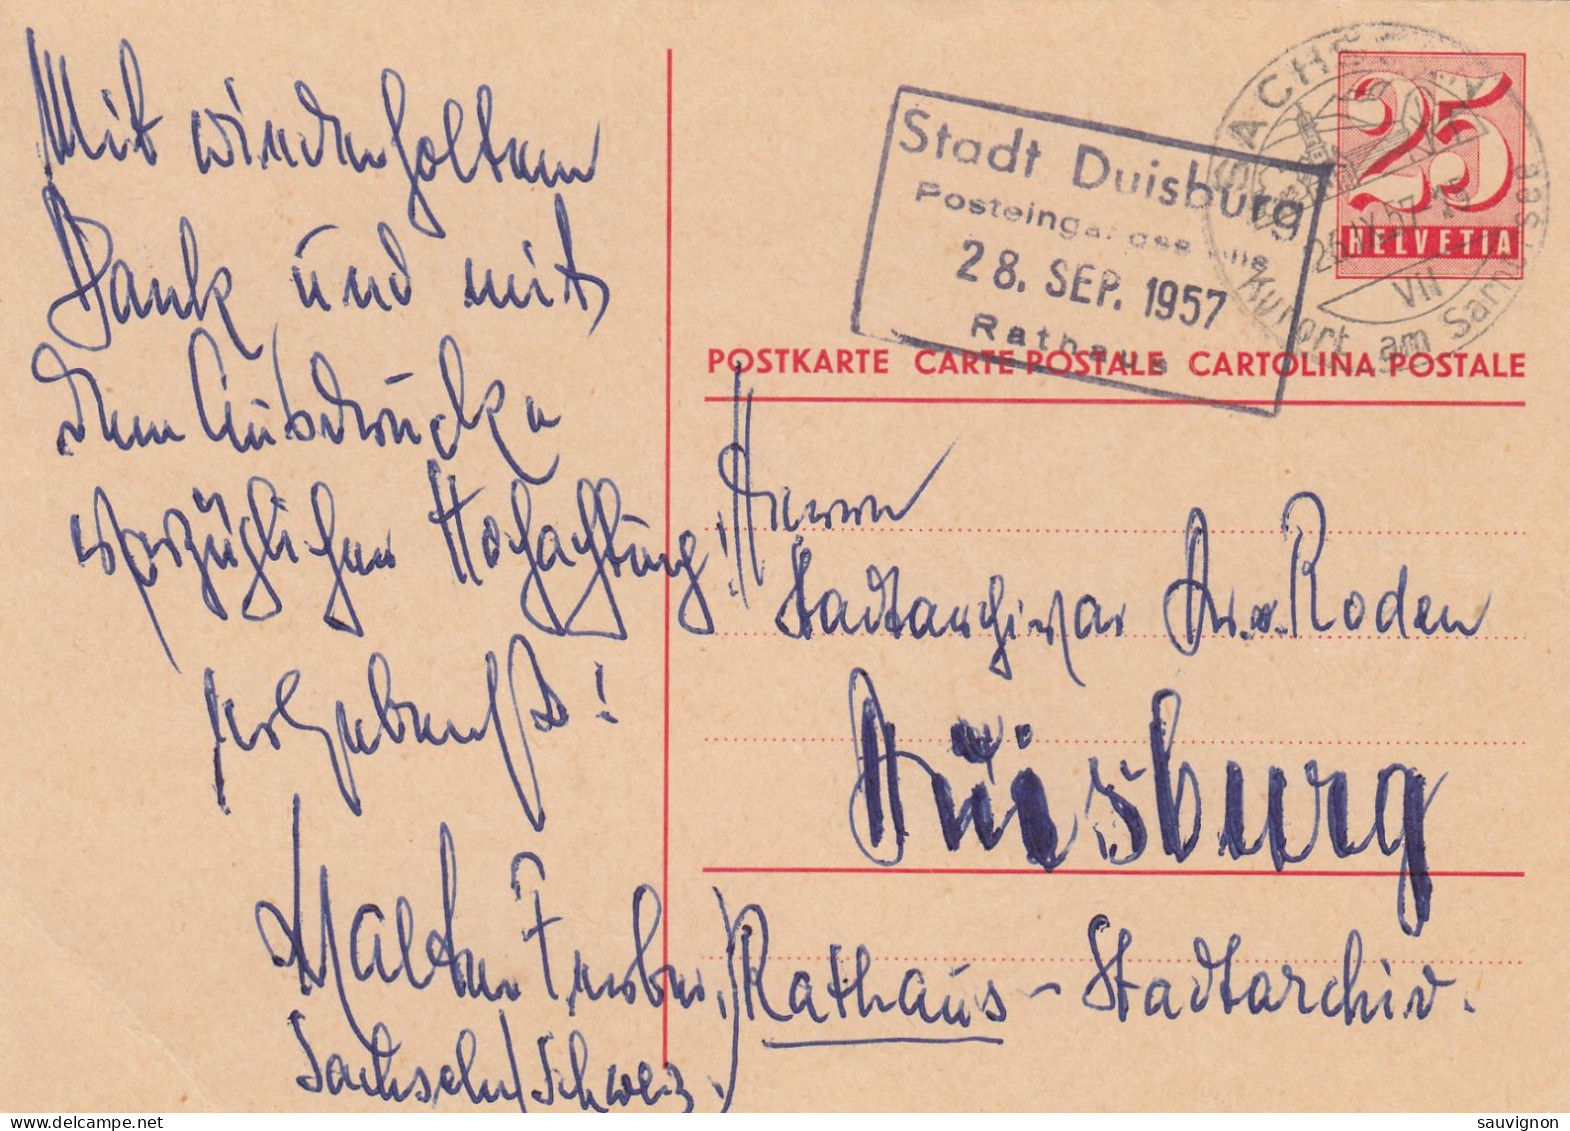 Mit wiederholtem
Dank und mit
dem Ausdrucke
vorzüglicher Hochachtung
ergebenst!
Walter
Sachseln/Schweiz.
Stadt Duisburg
28. SEP. 1957
Rathaus
SACHSELN
26.IX.57
VII
Kurort am Sarnersee
25
HELVETIA
POSTKARTE CARTE POSTALE CARTOLINA POSTALE
Herrn
Stadtarchivar Dr. v. Roden
Duisburg
Rathaus - Stadtarchiv.
sauvignon